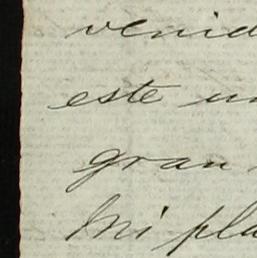 venid
este un
gran
Mi pla